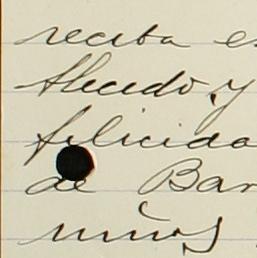 reciba e
afecto y
felicida
de Bar
niños